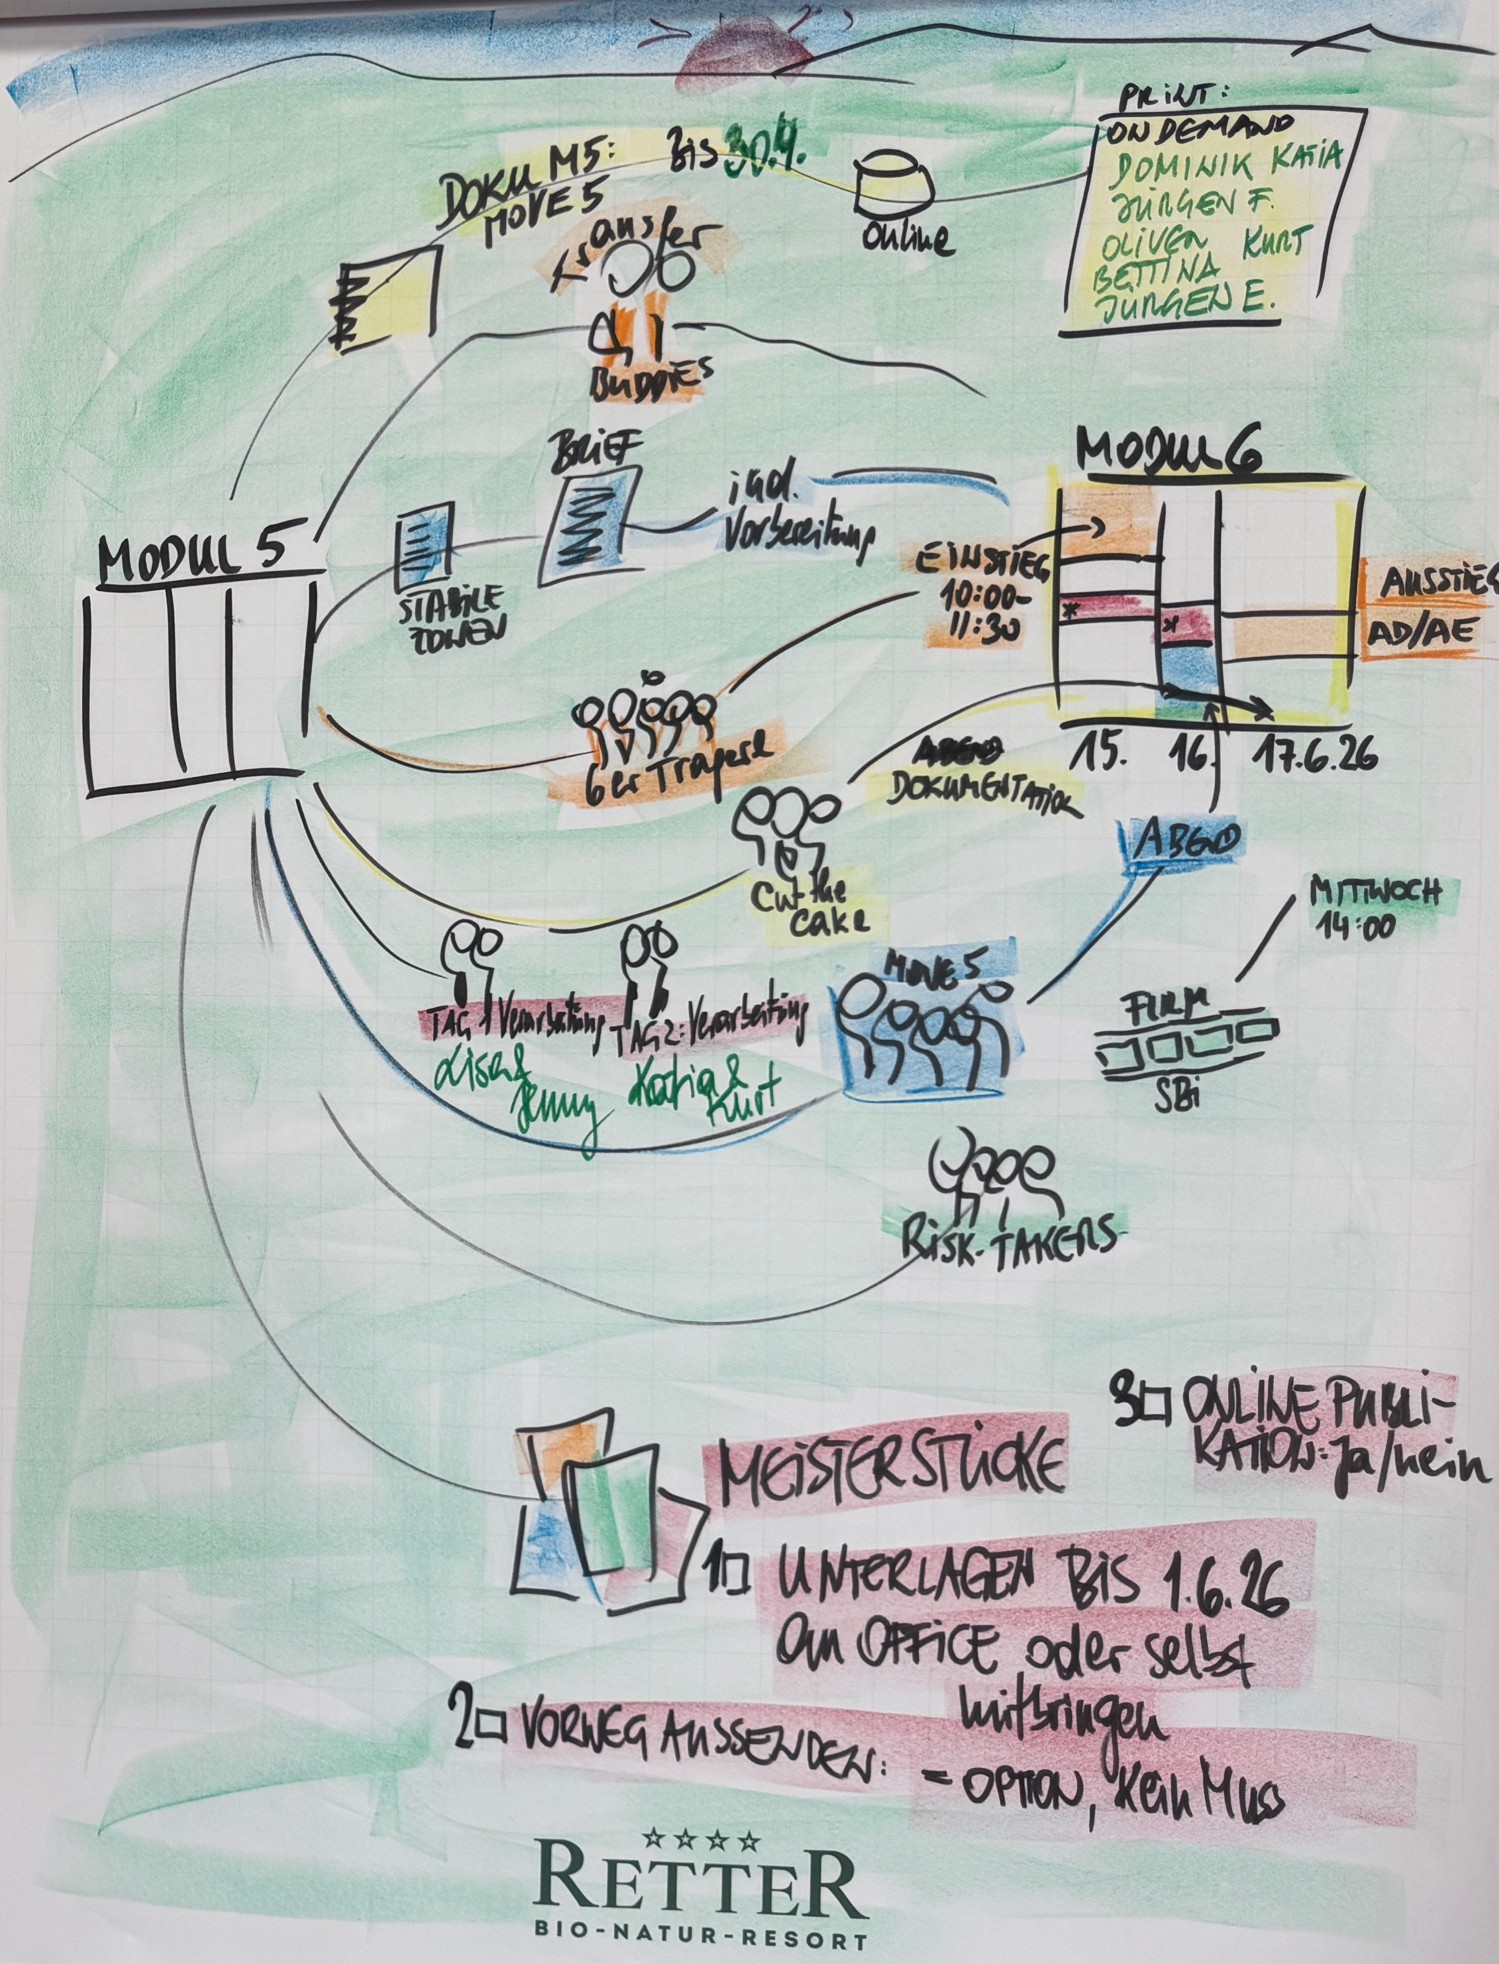 PRINT:
ON DEMAND
DOMINIK KATIA
JÜRGEN F.
OLIVER KURT
BETTINA
JÜRGEN E.
DOKU M5: BIS 30.4.
MOVE 5
Online
Transfer
BUDDIES
BRIEF
ind.
Vorbereitung
STABILE
ZONEN
MODUL 5
MODUL 6
EINSTIEG
10:00-
11:30
AUSSTIEG
AD/AE
*
*
15. 16. 17.6.26
6er Träger
ABEND
DOKUMENTATION
Cut the
Cake
ABEND
MITTWOCH
14:00
TAG 1 Verarbeitung
Lisa &
Jenny
TAG 2: Verarbeitung
Katia &
Kurt
MOVE 5
FILM
SBi
RISK-TAKERS
3 ONLINE PUBLI-
KATION: Ja/nein
MEISTERSTÜCKE
1 UNTERLAGEN BIS 1.6.26
an OFFICE oder selbst
mitbringen
2 VORWEG AUSSENDEN:
= OPTION, Kein Muss
RETTER
BIO-NATUR-RESORT